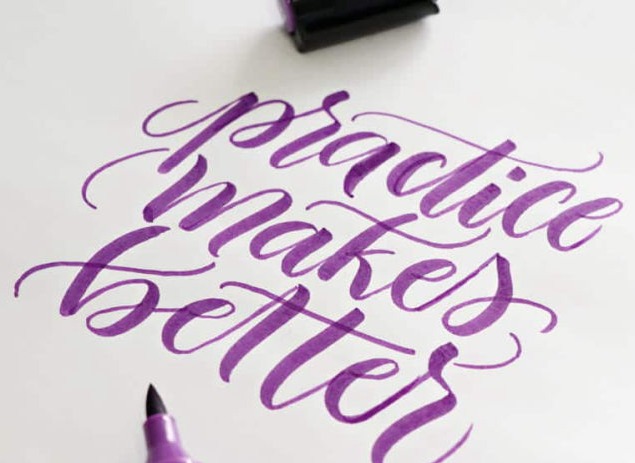 practice
makes
better